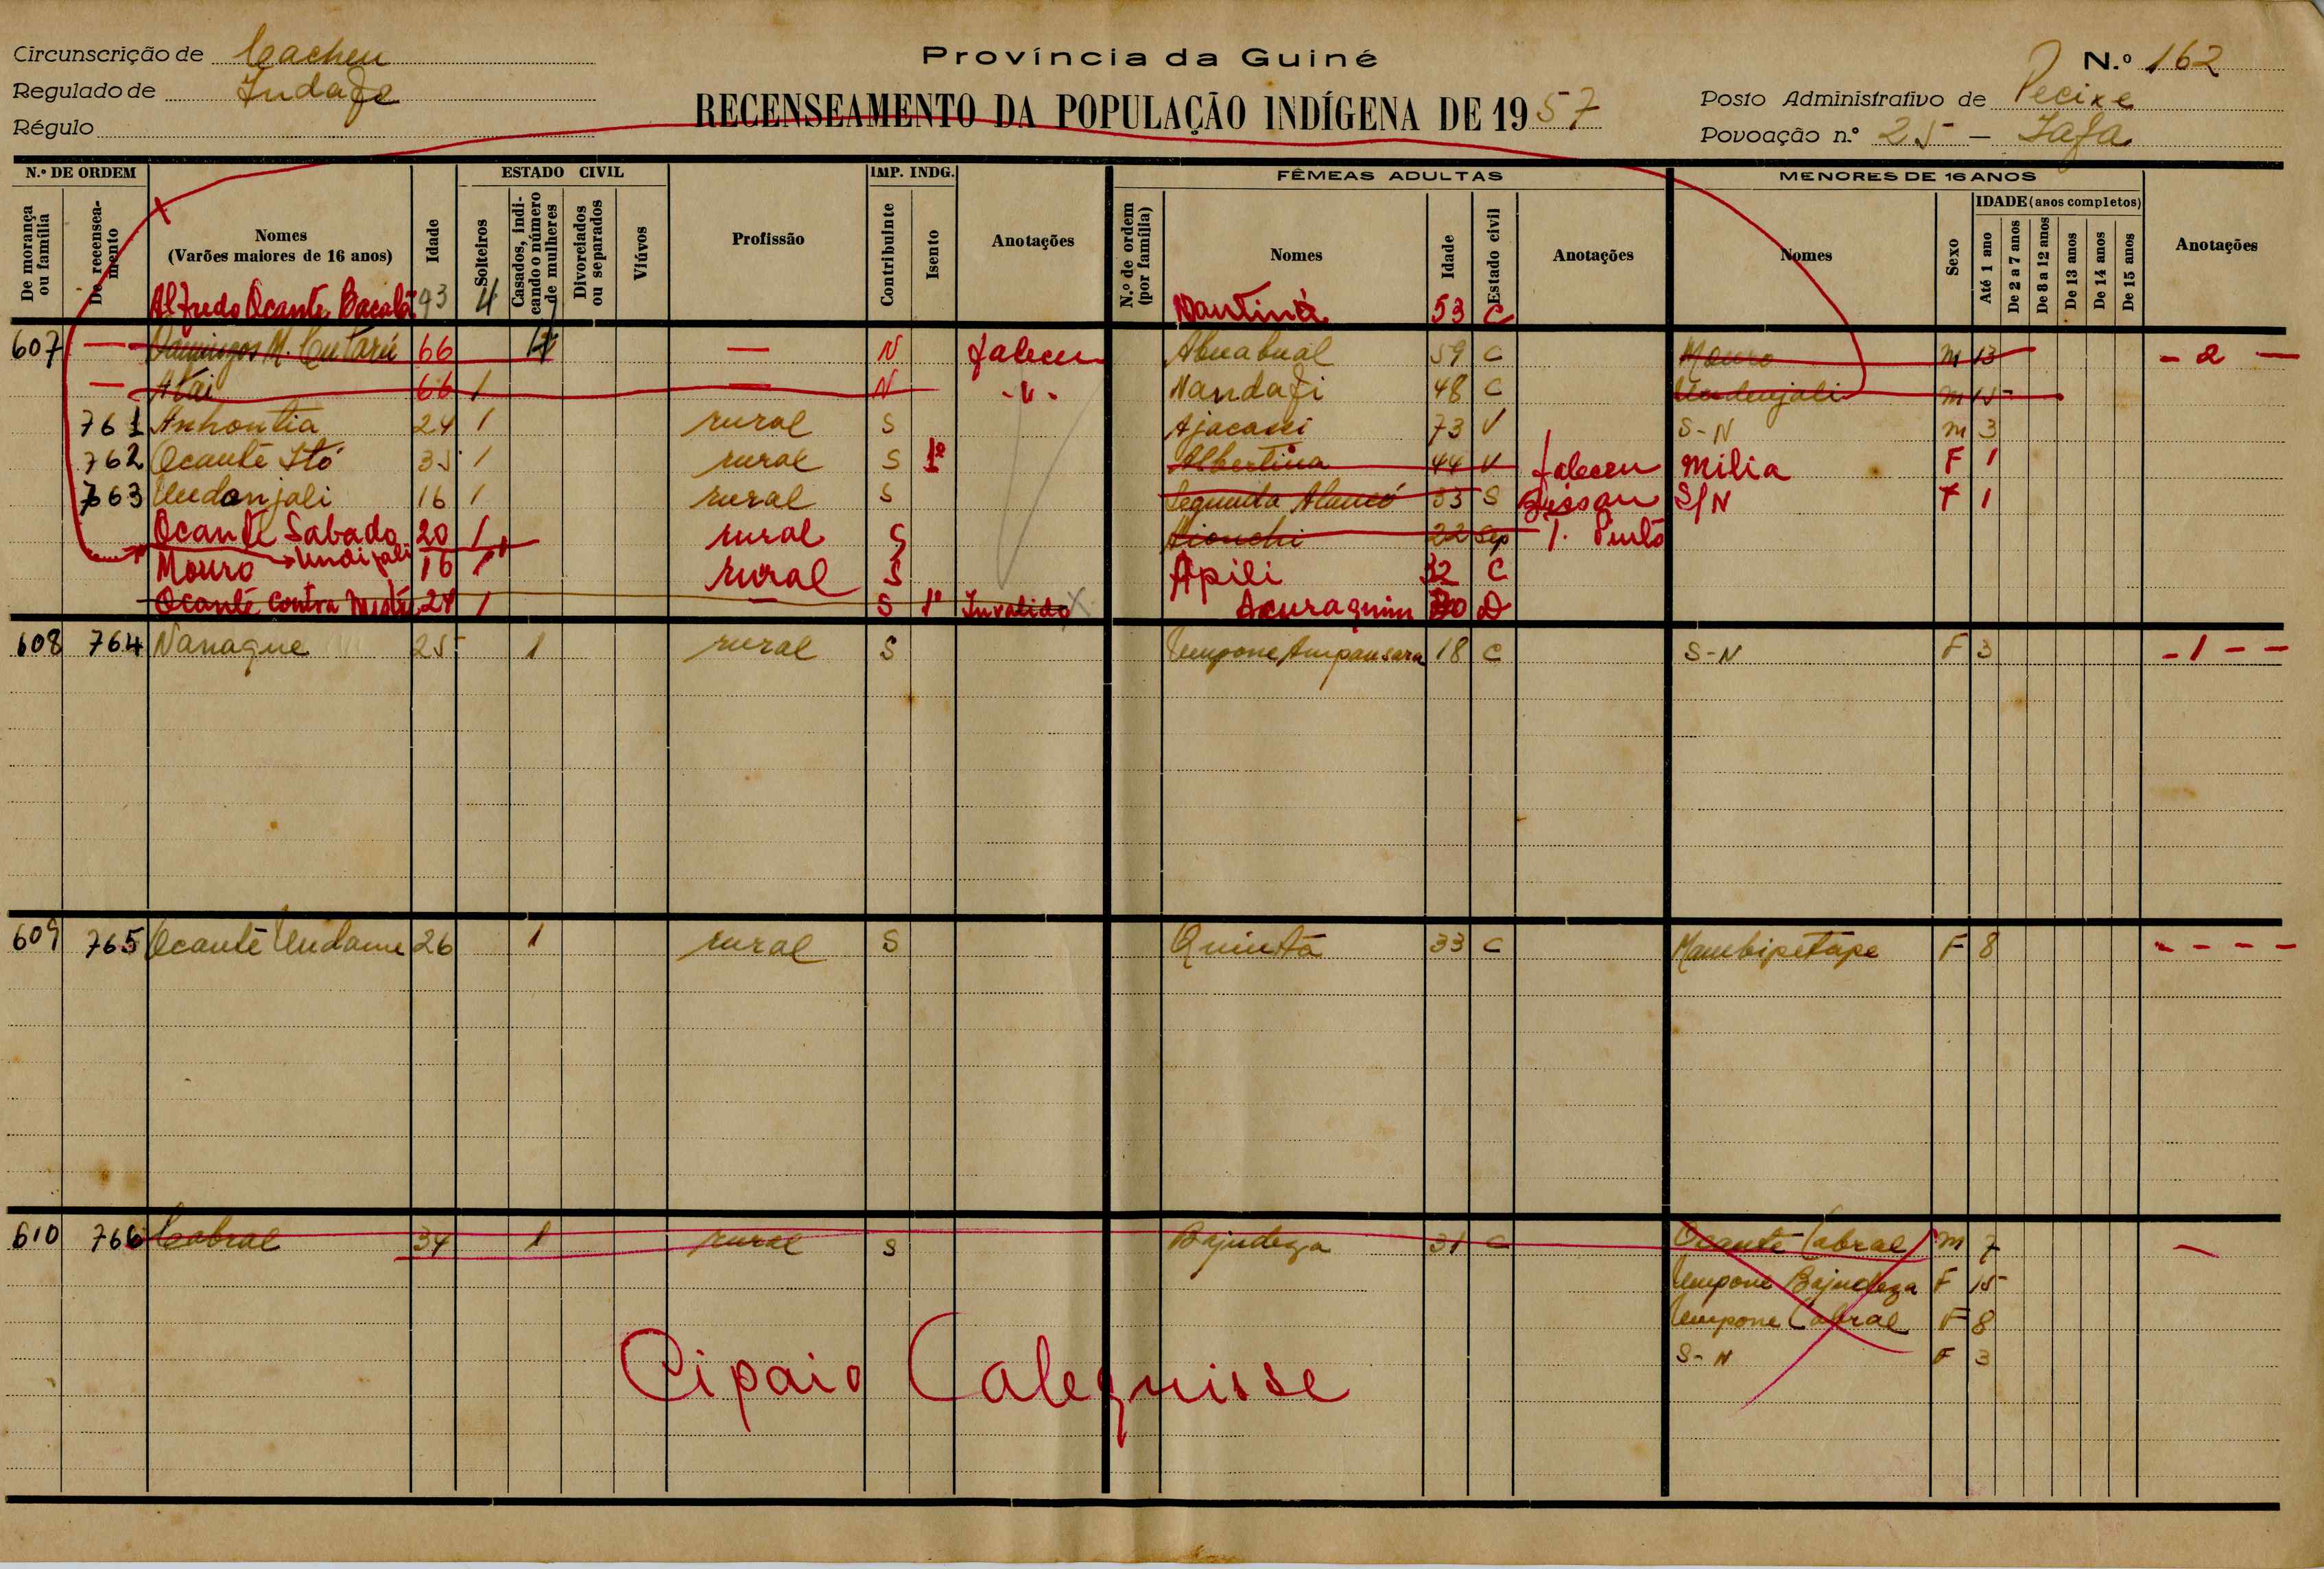 Circunscrição de Cacheu
Regulado de Indafe
Régulo
Província da Guiné
RECENSEAMENTO DA POPULAÇÃO INDÍGENA DE 1957
N.º 162
Posto Administrativo de Pecixe
Povoação n.º 25 — Iafa
N.º DE ORDEM
De morança ou família
De recenseamento
Nomes
(Varões maiores de 16 anos)
Idade
ESTADO CIVIL
Solteiros
Casados, indicando o número de mulheres
Divorciados ou separados
Viúvos
Profissão
IMP. INDG.
Contribuinte
Isento
Anotações
FÊMEAS ADULTAS
N.º de ordem (por família)
Nomes
Idade
Estado civil
Anotações
MENORES DE 16 ANOS
Nomes
Sexo
IDADE (anos completos)
Até 1 ano
De 2 a 7 anos
De 8 a 12 anos
De 13 anos
De 14 anos
De 15 anos
Anotações
Alfredo Ocante 43 4 Nantiná 53 C
607 — Domingos M. 66 — N faleceu Abuabual 59 C Mouro m 13 - 2 —
— Atai 66 1 — N - " - Nandafi 48 C Undunjali m 15
761 Anhontia 24 1 rural S Ajacassi 73 V S-N m 3
762 Ocante Stó 35 1 rural S 1º Albertina 44 V faleceu Milia F 1
763 Undonjali 16 1 rural S Segunda 33 S Bissau S/N F 1
Ocante Sabado 20 1 rural S 22 Sep T. Pinto
Mouro → Undijali 16 1 rural S Apili 32 C
Ocante Contra 24 1 — S 1º Invalido Acuraquim D
608 764 Nanaque 25 1 rural S Umpone Ampansara 18 C S-N F 3 - 1 - -
609 765 Ocante Undame 26 1 rural S Quinta 33 C Mambipetape F 8 - - - -
610 766 Cabral 34 1 rural S Bajudeza 31 C Ocante Cabral m 7 —
Umpone Bajudeza F 15
Umpone Cabral F 8
S-N F 3
Cipaio Calequisse